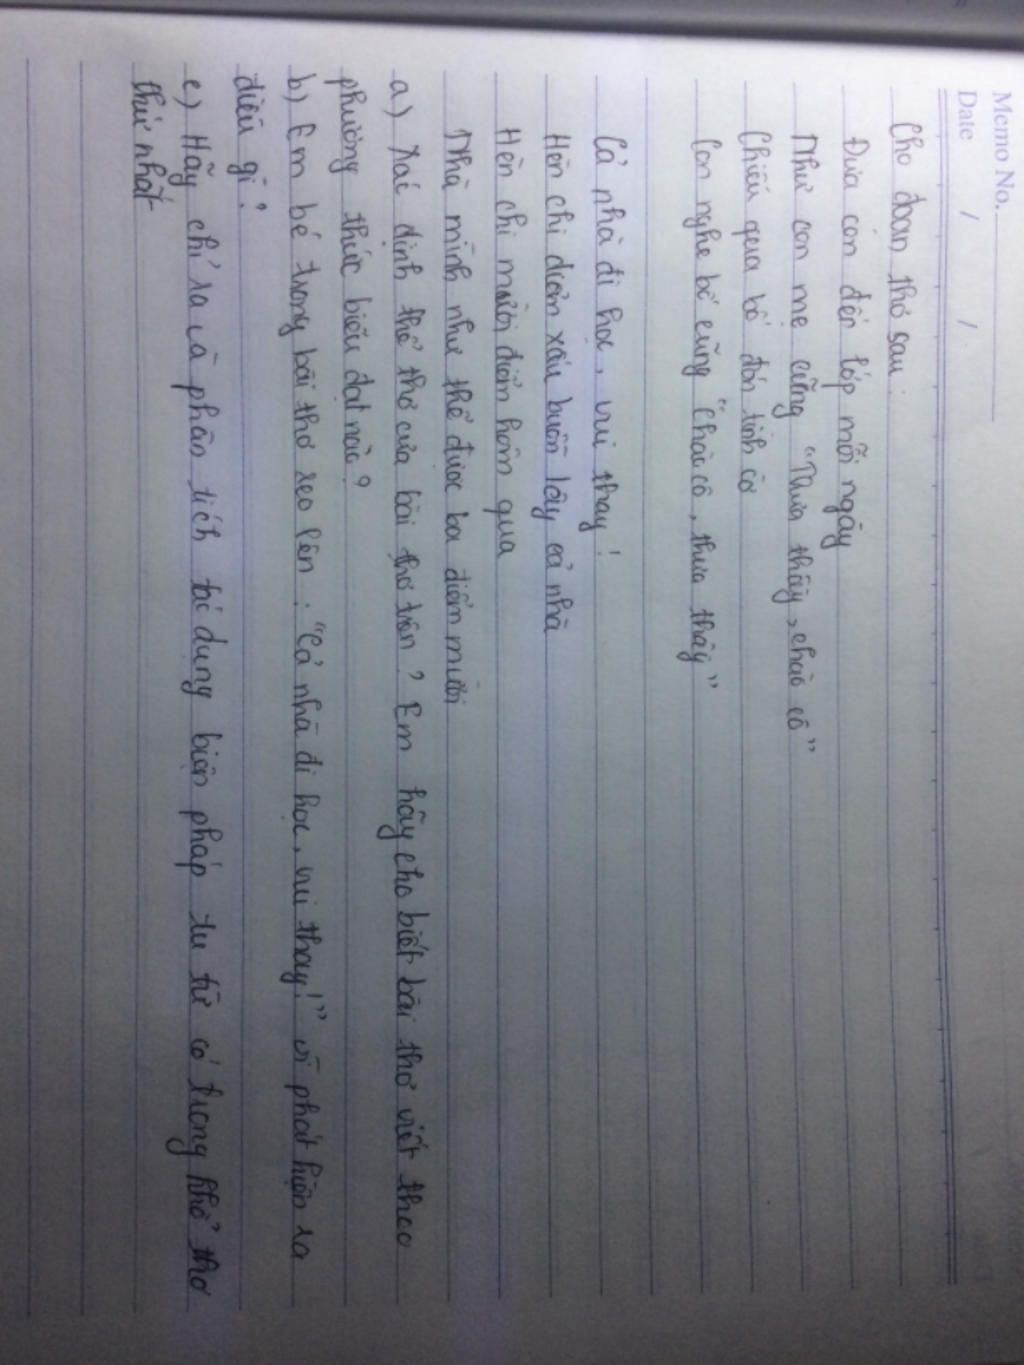 Memo No.
Date / /
Cho đoạn thơ sau:
Đưa con đến lớp mỗi ngày
Như con mẹ cũng "Thưa thầy, chào cô"
Chiều qua bố đón tình cờ
Con nghe bố cũng "Chào cô, thưa thầy"
Cả nhà đi học, vui thay!
Hèn chi điểm xấu buồn lây cả nhà
Hèn chi mười điểm hôm qua
Nhà mình như thể được ba điểm mười
a) Xác định thể thơ của bài thơ trên? Em hãy cho biết bài thơ viết theo
phương thức biểu đạt nào?
b) Em bé trong bài thơ reo lên: "Cả nhà đi học, vui thay!" vì phát hiện ra
điều gì?
c) Hãy chỉ ra và phân tích tác dụng biện pháp tu từ có trong khổ thơ
thứ nhất